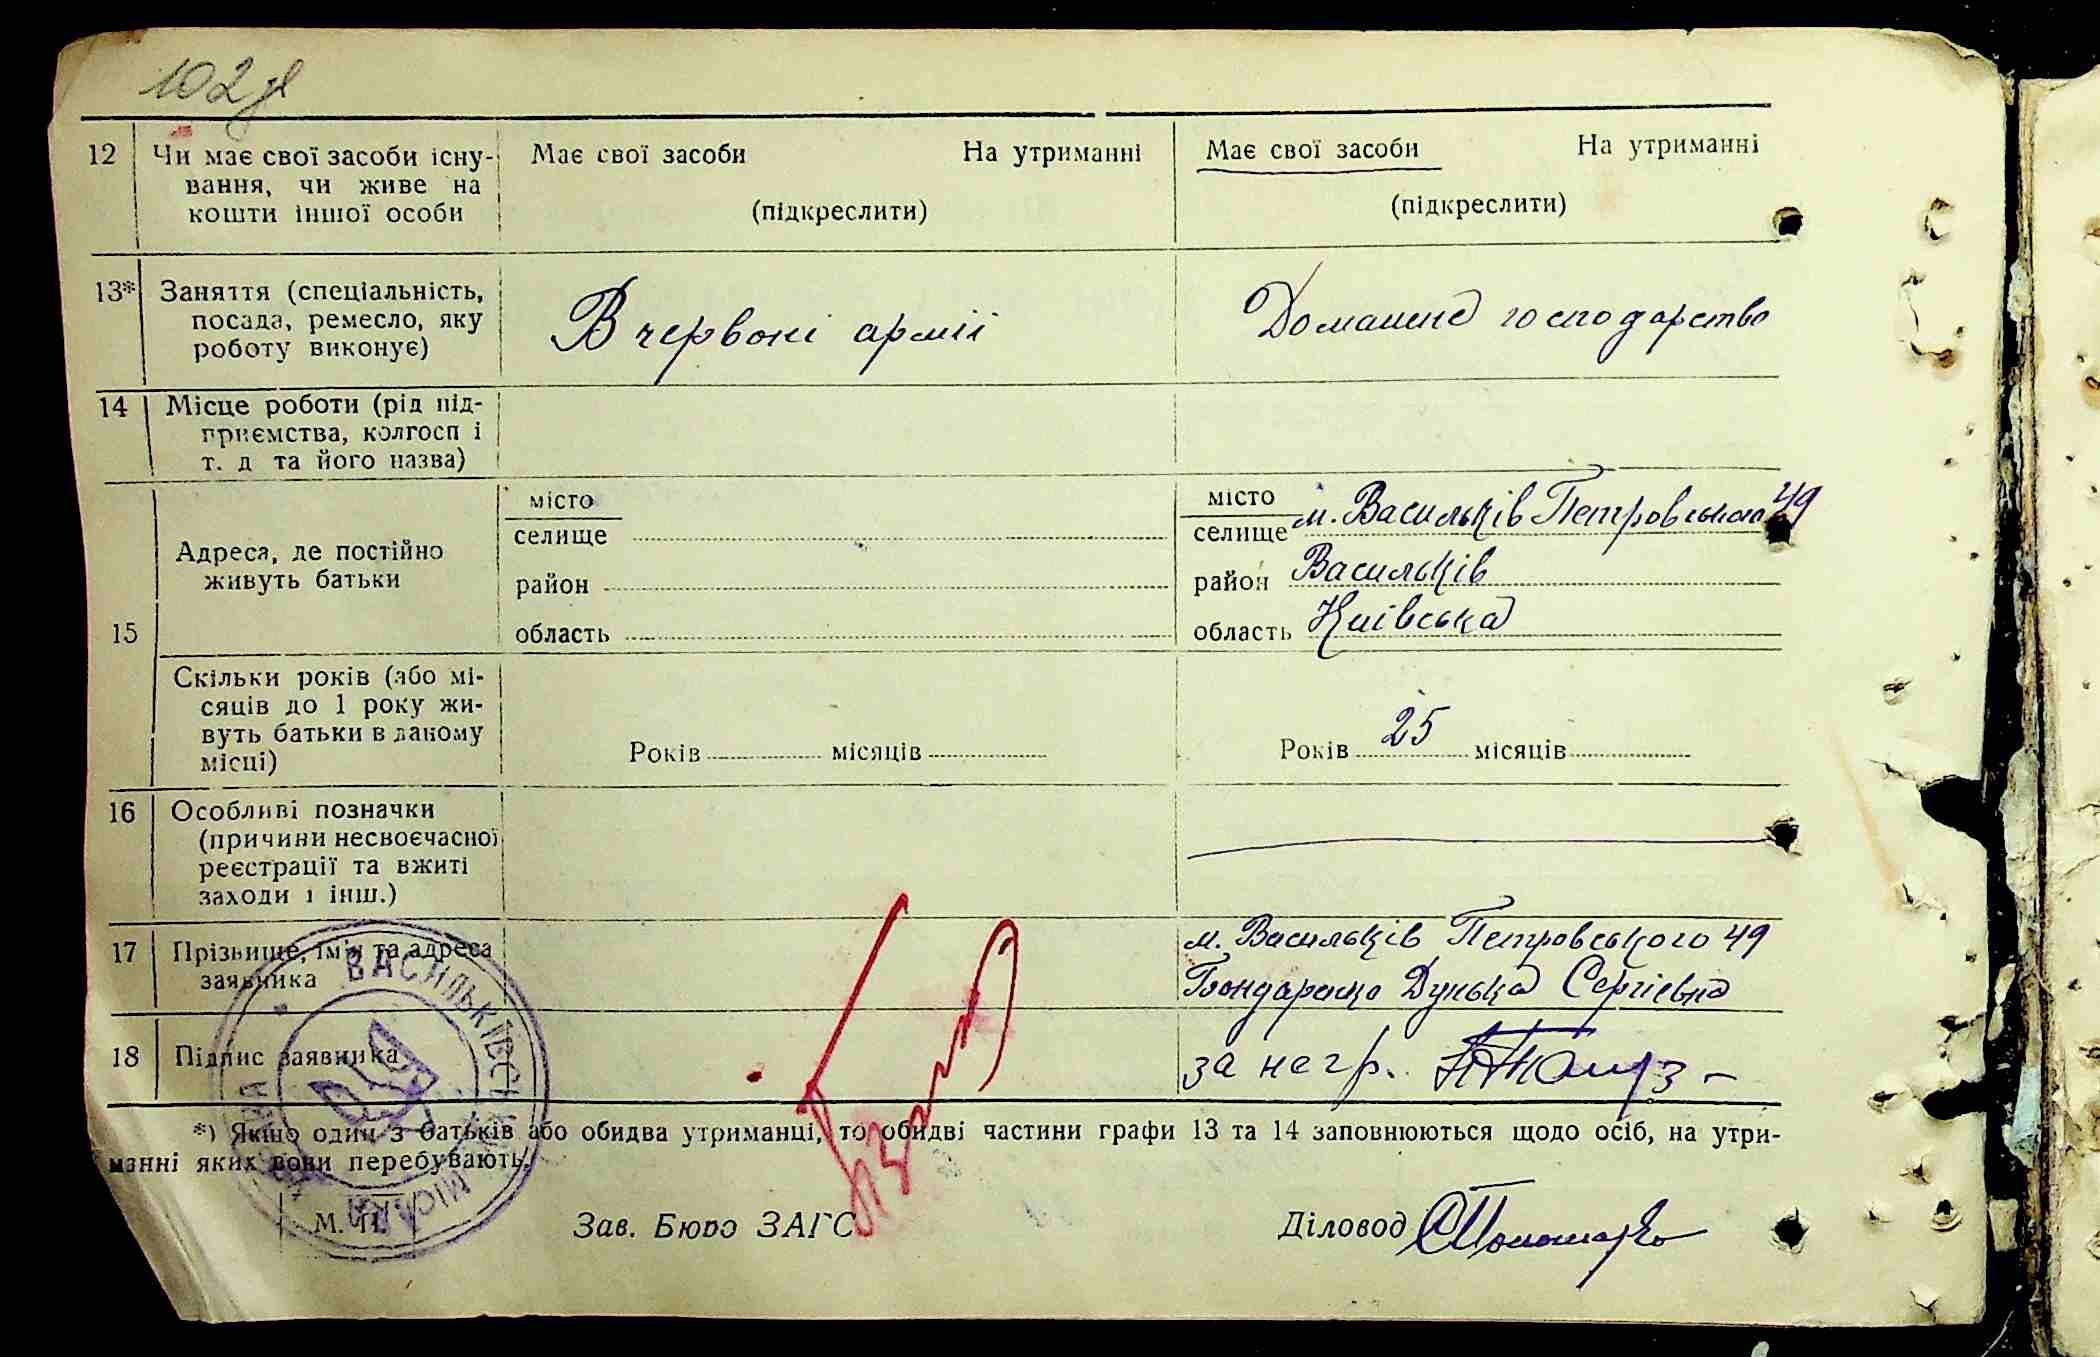 102
12 Чи має свої засоби існу-
вання, чи живе на
кошти іншої особи
Має свої засоби На утриманні
(підкреслити)
Має свої засоби На утриманні
(підкреслити)
13* Заняття (спеціальність,
посада, ремесло, яку
роботу виконує)
В червоні армії
Домашнє господарство
14 Місце роботи (рід під-
приємства, колгосп і
т. д та його назва)
15
Адреса, де постійно
живуть батьки
місто
селище
район
область
місто
селище м. Васильків Петровського 49
район Васильків
область Київська
Скільки років (або мі-
сяців до 1 року жи-
вуть батьки в даному
місці)
Років місяців
Років 25 місяців
16 Особливі позначки
(причини несвоєчасної
реєстрації та вжиті
заходи і інш.)
17 Прізвище, ім'я та адреса
заявника
м. Васильків Петровського 49
Бондаренко Дунька Сергіевна
18 Підпис заявника
за негр.
*) Якщо один з батьків або обидва утриманці, то обидві частини графи 13 та 14 заповнюються щодо осіб, на утри-
манні яких вони перебувають.
М. П.
Зав. Бюро ЗАГС
Діловод